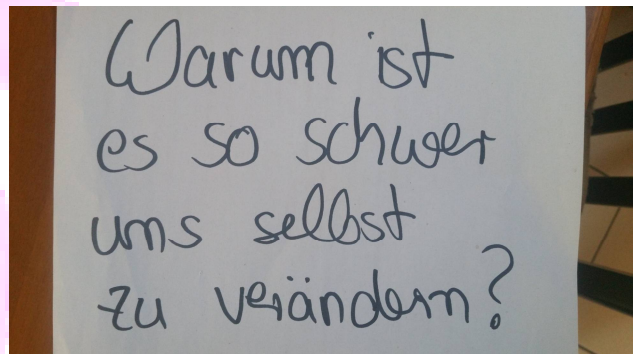 Warum ist
es so schwer
uns selbst
zu verändern?